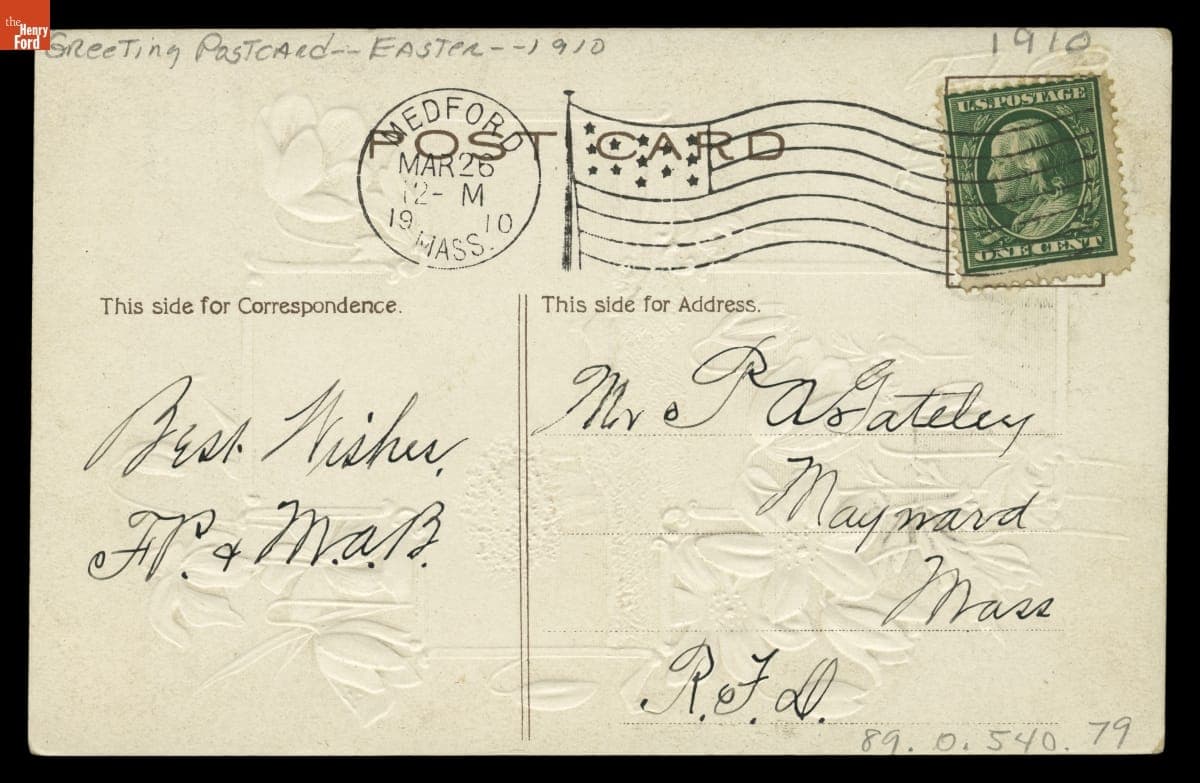 the
Henry
Ford
Greeting Postcard -- Easter -- 1910
1910
POST CARD
MEDFORD
MAR 26
12- M
19 10
MASS.
U.S. POSTAGE
ONE CENT
This side for Correspondence.
This side for Address.
Best Wishes.
F.P. & M.A.B.
Mr P A Gateley
Maynard
Mass
R.F.D.
89.0.540.79